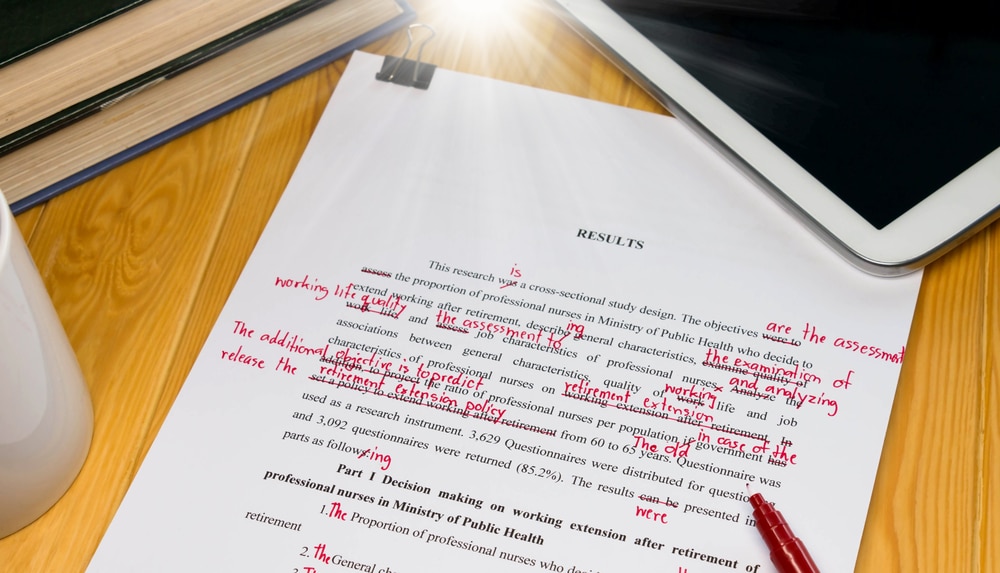 RESULTS
is
This research was a cross-sectional study design. The objectives were to are the assessment
assess the proportion of professional nurses in Ministry of Public Health who decide to
working life quality
extend working after retirement, describe ing general characteristics, examine quality of the examination of
work life, and assess the assessment to job characteristics of professional nurses. Analyze the and analyzing
associations between general characteristics, quality of work working life and job
characteristics of professional nurses on working extension after retirement. In retirement extension
The additional objective is to predict
addition, to project the ratio of professional nurses per population if government has in case of the
release the retirement extension policy
set a policy to extend working after retirement from 60 to 65 years. Questionnaire was The old
used as a research instrument. 3,629 Questionnaires were distributed for
and 3,092 questionnaires were returned (85.2%). The results can be presented in
were
parts as follow ing
Part 1 Decision making on working extension after retirement of
professional nurses in Ministry of Public Health
1. The Proportion of professional nurses who
retirement
2. the General